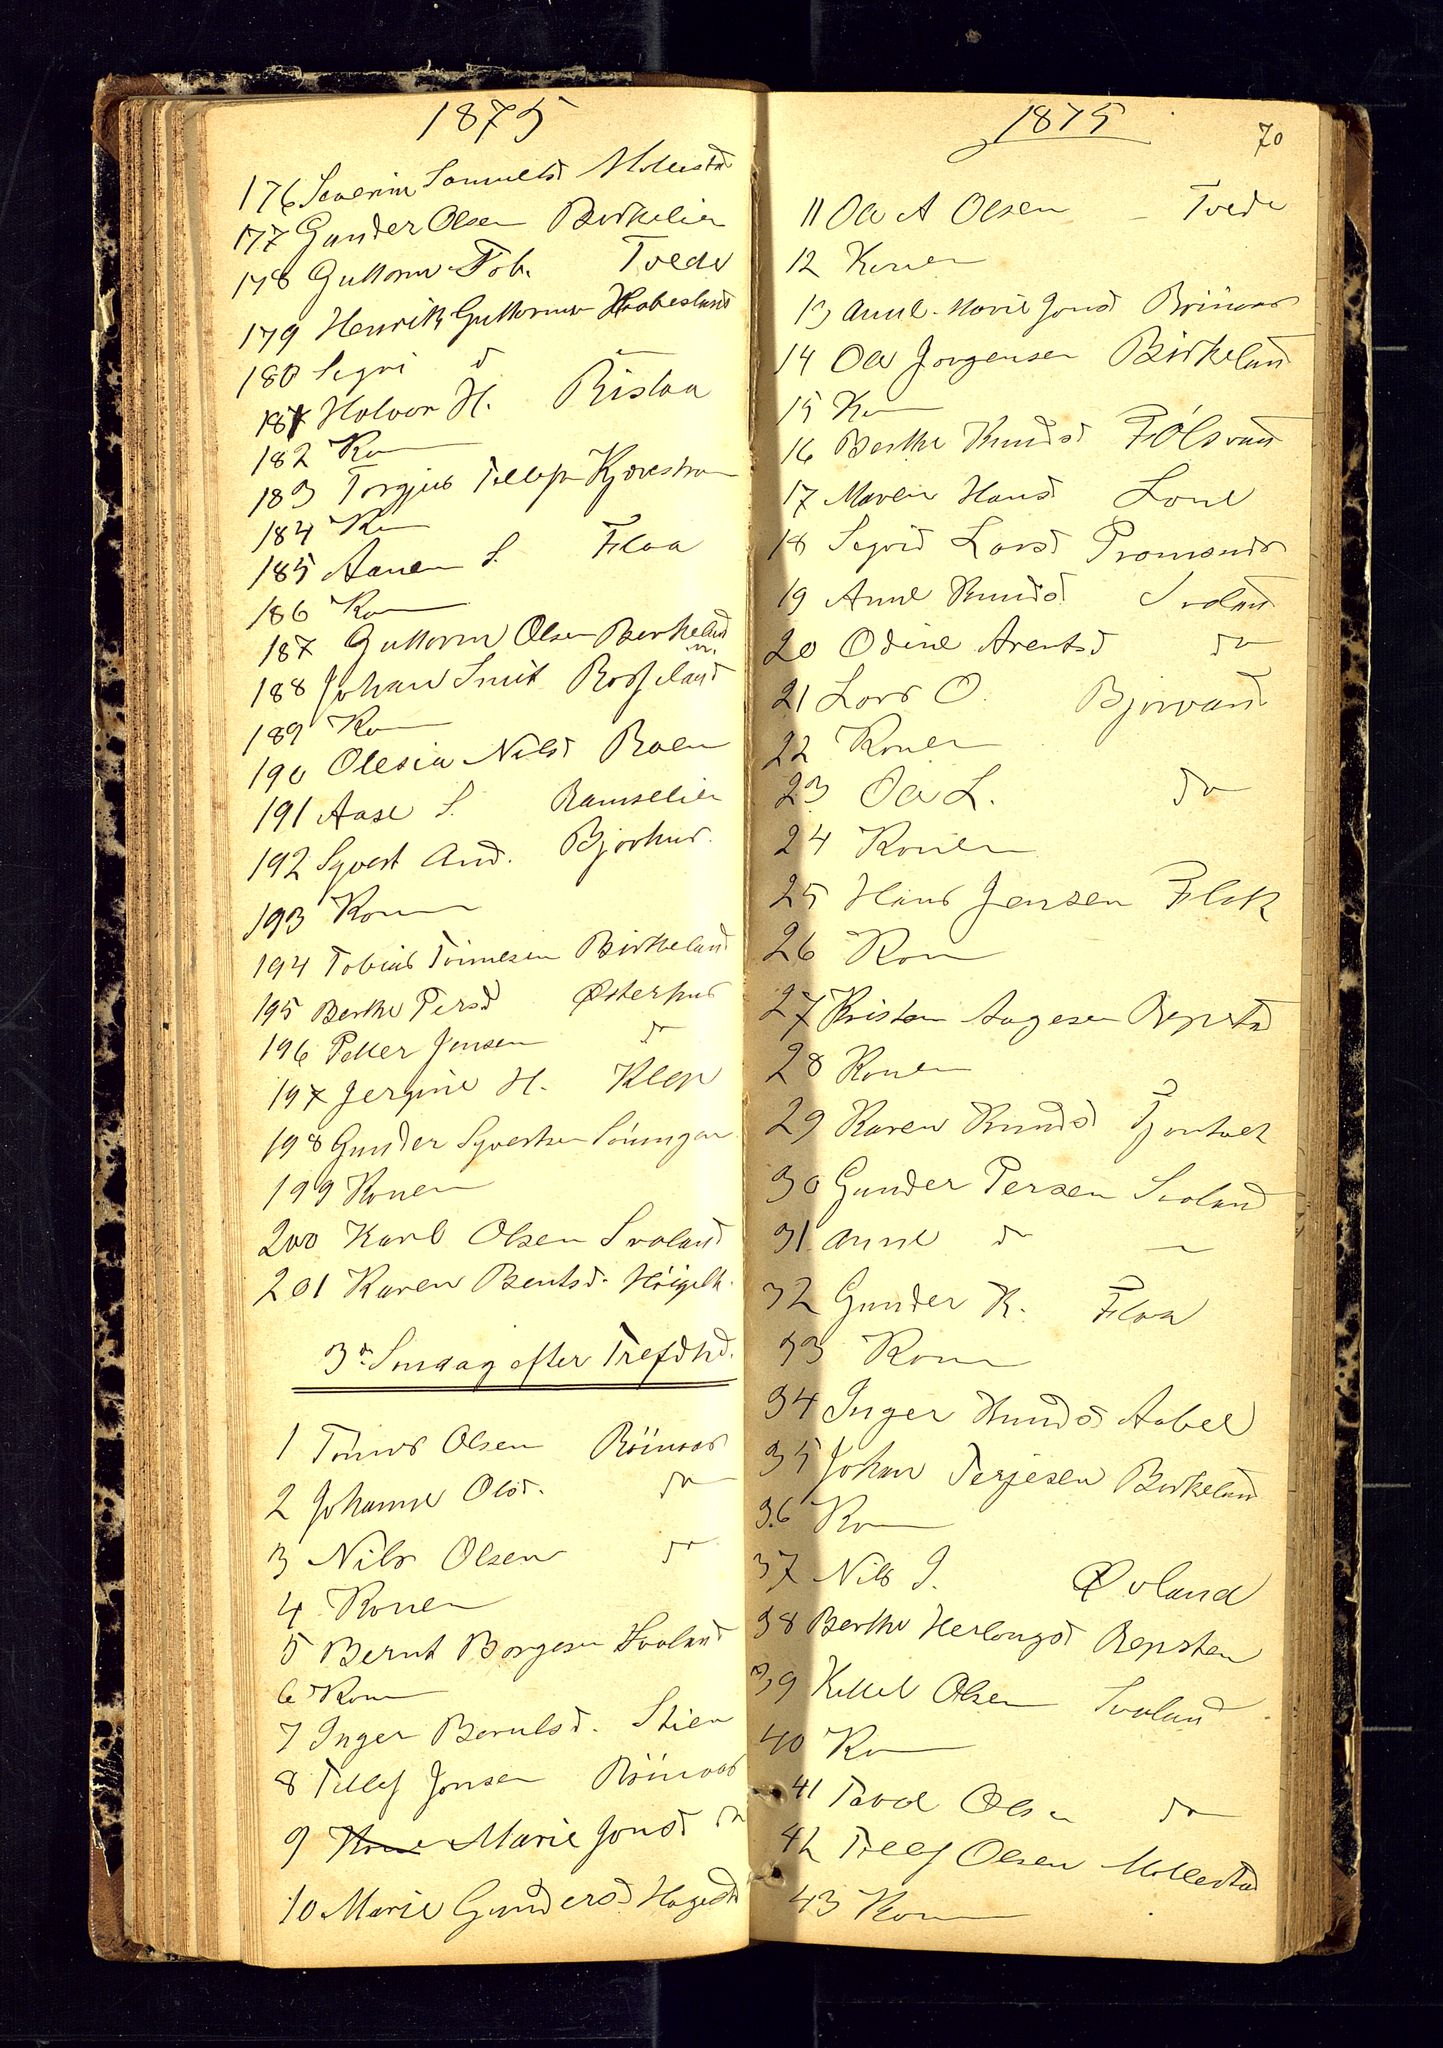 1875
176 Severine Samuelsd Mollestad
177 Gunder Olsen Birkelien
178 Guttorm Tob. Tvede
179 Henrik Guttormsen Haabesland
180 Sigri d
181 Halvor H. Rislaa
182 Kon
183 Torgius Tellefs Kjevestrøm
184 Kon
185 Aanen S. Flaa
186 Kon
187 Guttorm Olsen Berkeland
188 Johan Smit Rosseland
189 Kon
190 Olesia Nilsd Roen
191 Aase S. Ramselien
192 Syvert And. Bjorhus.
193 Konen
194 Tobias Tønnesen Birkeland
195 Berthe Persd Østerhus
196 Petter Jensen do
197 Jergine H. Klep
198 Gunder Syvertsen
199 Konen
200 Karl Olsen Svaland
201 Karen Bentsd.
3die Søndag efter Trefdhd.
1 Tønnes Olsen
2 Johanne Olsd. do
3 Nils Olsen do
4 Konen
5 Bernt Borgesen Svaland
6 Kon
7 Inger Berntsd. Stien
8 Tellef Jonsen
9 Marie Jonsd do
10 Marie Gundersd Hagestd
1875
70
11 Ole A Olsen Tvede
12 Konen
13 Anne Marie Jonsd
14 Ole Jørgensen Birkeland
15 Kon
16 Berthe Knudsd Følsvand
17 Maren Hansd Lone
18 Sigrid Larsd
19 Anne Knudsd Svaland
20 Odine Arentsd do
21 Lars O. Bjorvand
22 Konen
23 Ole L. do
24 Konen
25 Hans Jensen Flak
26 Kon
27 Kristen Aagesen Repstad
28 Konen
29 Karen Knudsd
30 Gunder Persen Svaland
31 Anne do
32 Gunder K. Flaa
33 Kon
34 Inger Knudsd Aabel
35 Johan Terjesen Birkeland
36 Kon
37 Nils J. Øvland
38 Berthe Herlougsd Repsten
39 Kittel Olsen Svaland
40 Kon
41 Tarel Olsen do
42 Tellef Olsen Mollestad
43 Kon